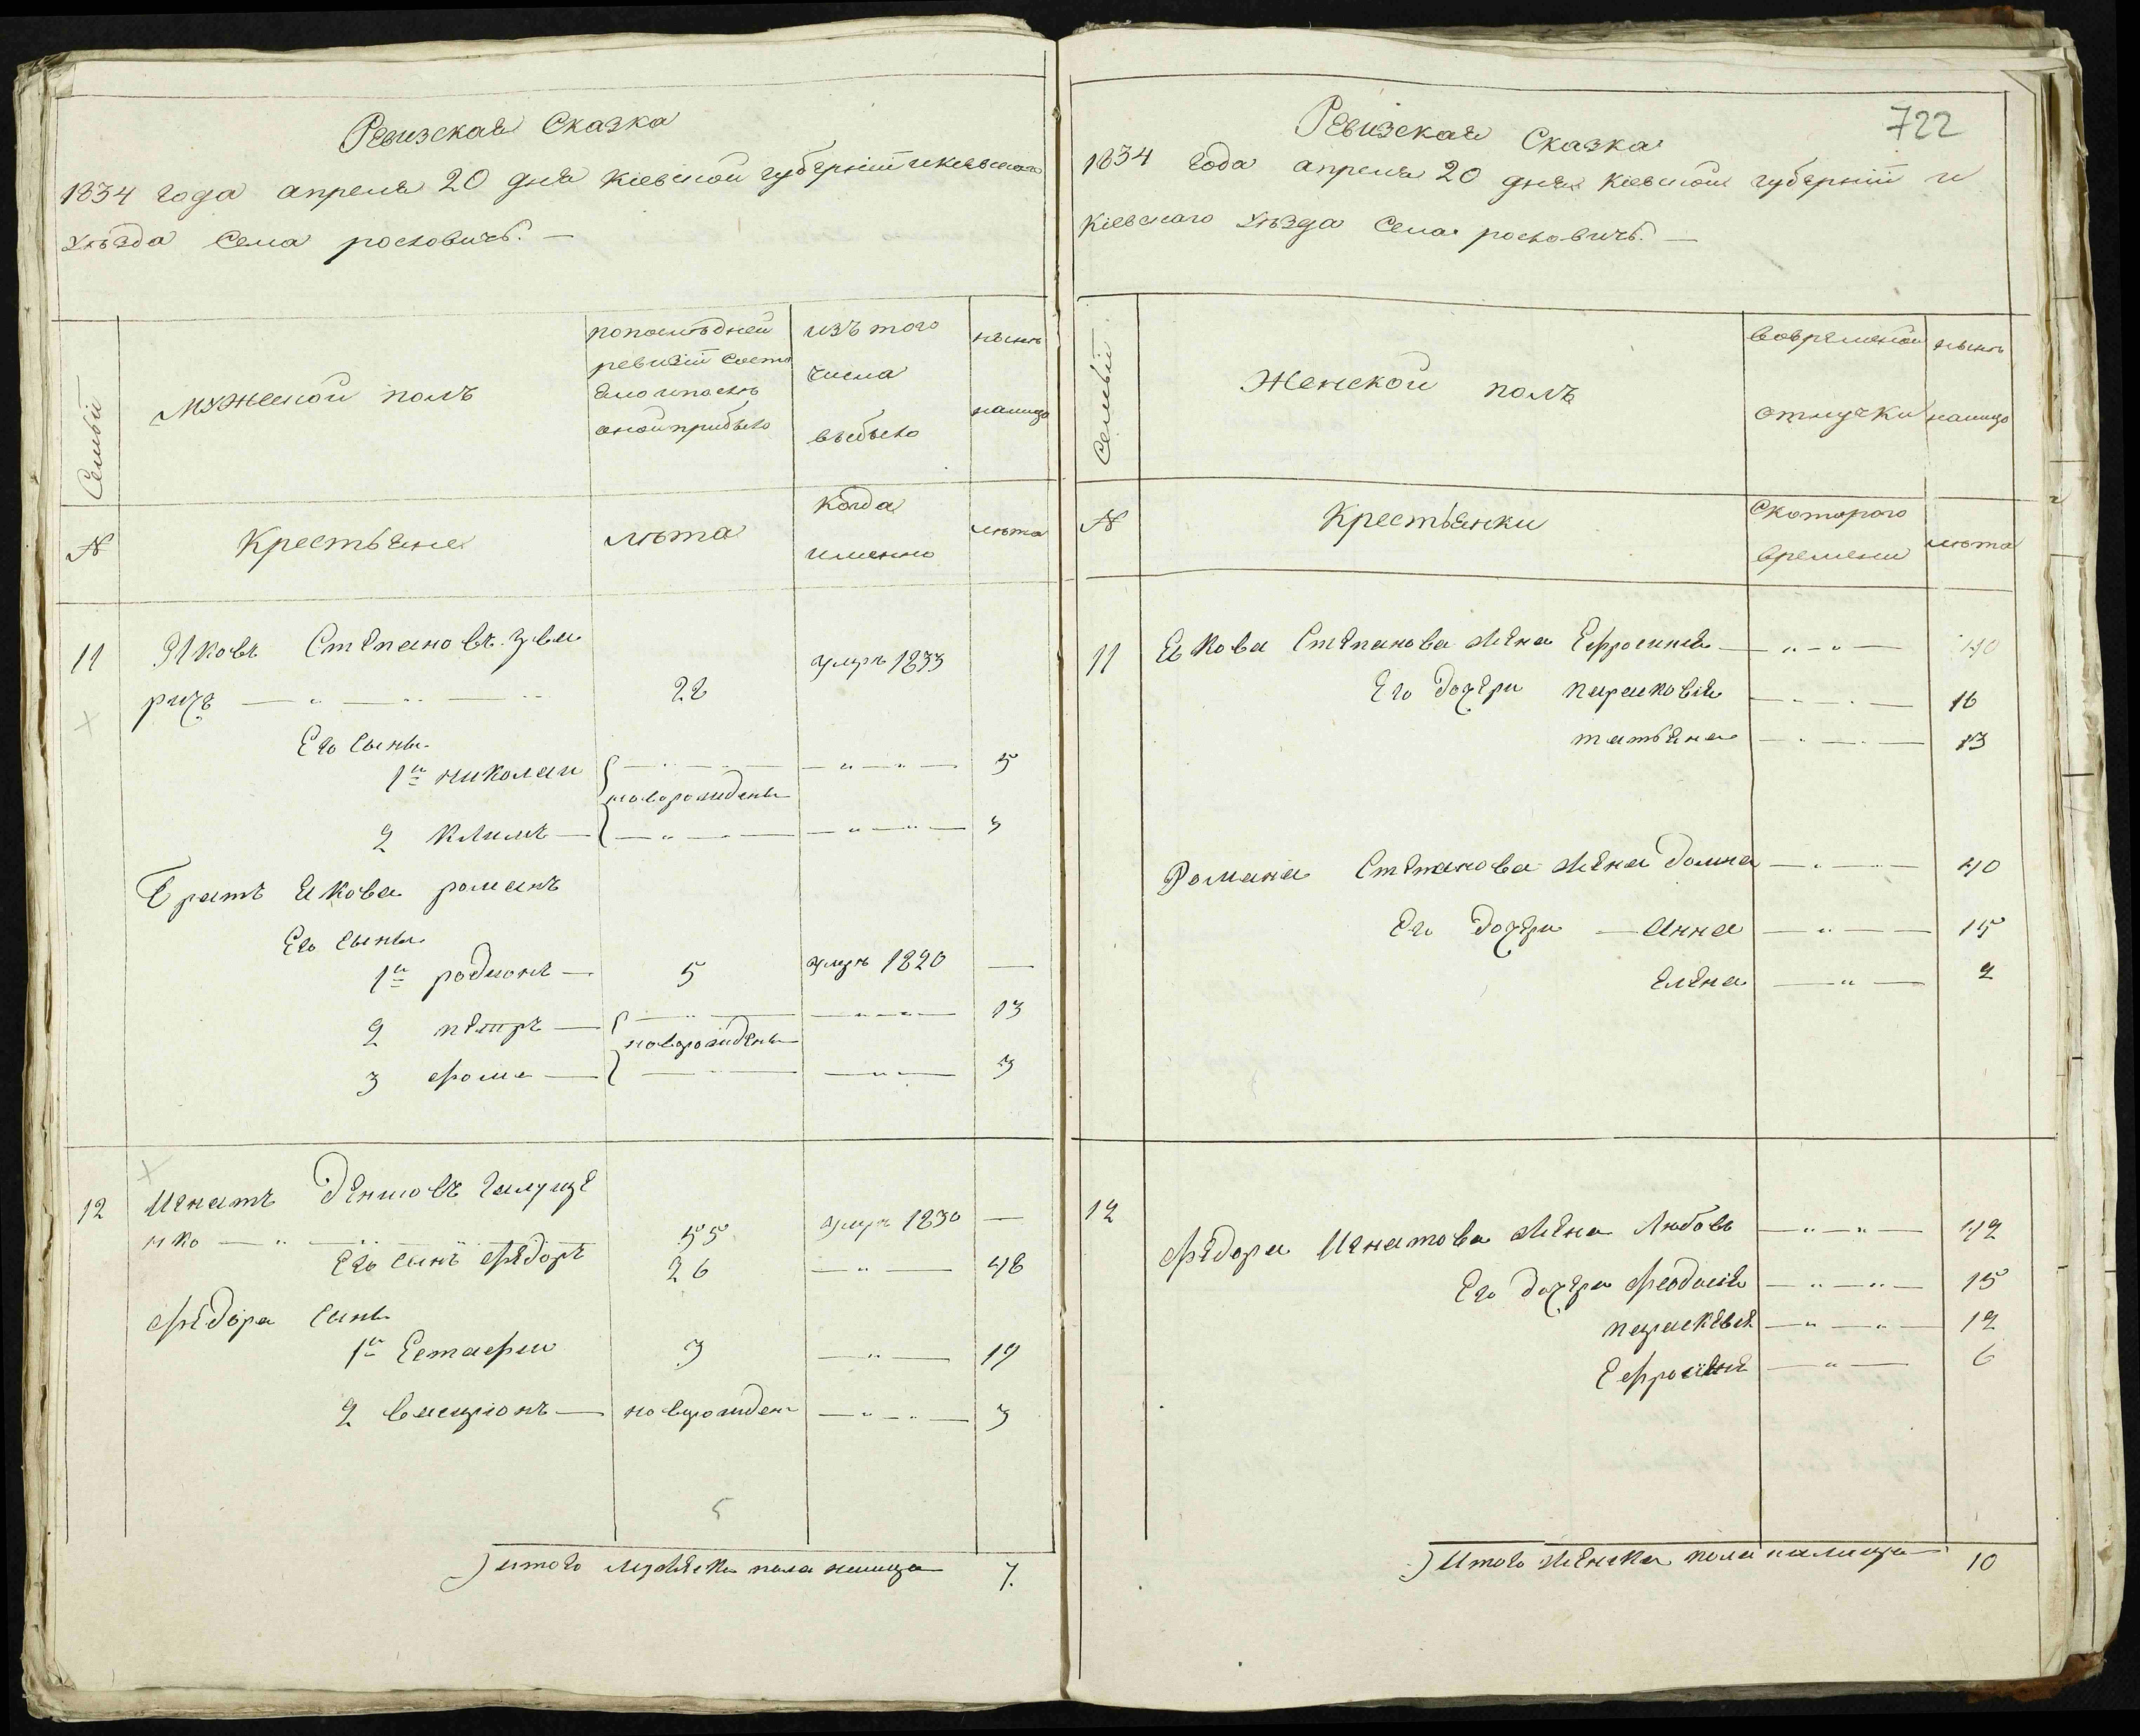 Ревизская Сказка
1834 года апреля 20 дня Кіевской губерніи и Кіевскаго
Уѣзда Села рославичь. —
Семьи
мужеской полъ
попослѣдней
ревизіи состо
яло и послѣ
оной прибыло
изъ того
числа
выбыло
нынѣ
налицо
№
Крестьяне
лѣта
когда
именно
лѣта
11 Яковъ Степановъ
28 умре 1833
Его сыны
1й николаи 5
новорождены
2 климъ 3
Братъ Якова романъ
Его сыны
1й родионъ — 5 умре 1820 —
2 петръ — 13
новорождены
3 фома — 3
12 Игнатъ
нко 55 умре 1830 —
Его сынъ федоръ 26 48
федора сыны
1й Естафии 3 19
2 — новорожден 3
5
итого мужеска пола налицо 7.
722
Ревизская Сказка
1834 года апреля 20 дня Кіевской губерніи и
Кіевскаго Уѣзда Села рославичь. —
Семьи
Женской полъ
вовременой
отлучки
нынѣ
налицо
№
Крестьянки
Скоторого
времени
лѣта
11 Якова Степанова жена Ефросиния 40
Его дочери парасковія 16
татьяна 13
Романа Степанова жена домна 40
Его дочери — анна 15
Елена 2
12
федора Игнатова жена Любовь 42
Его дочери феодосія 15
параскевья 12
6
Итого женска пола налицо 10